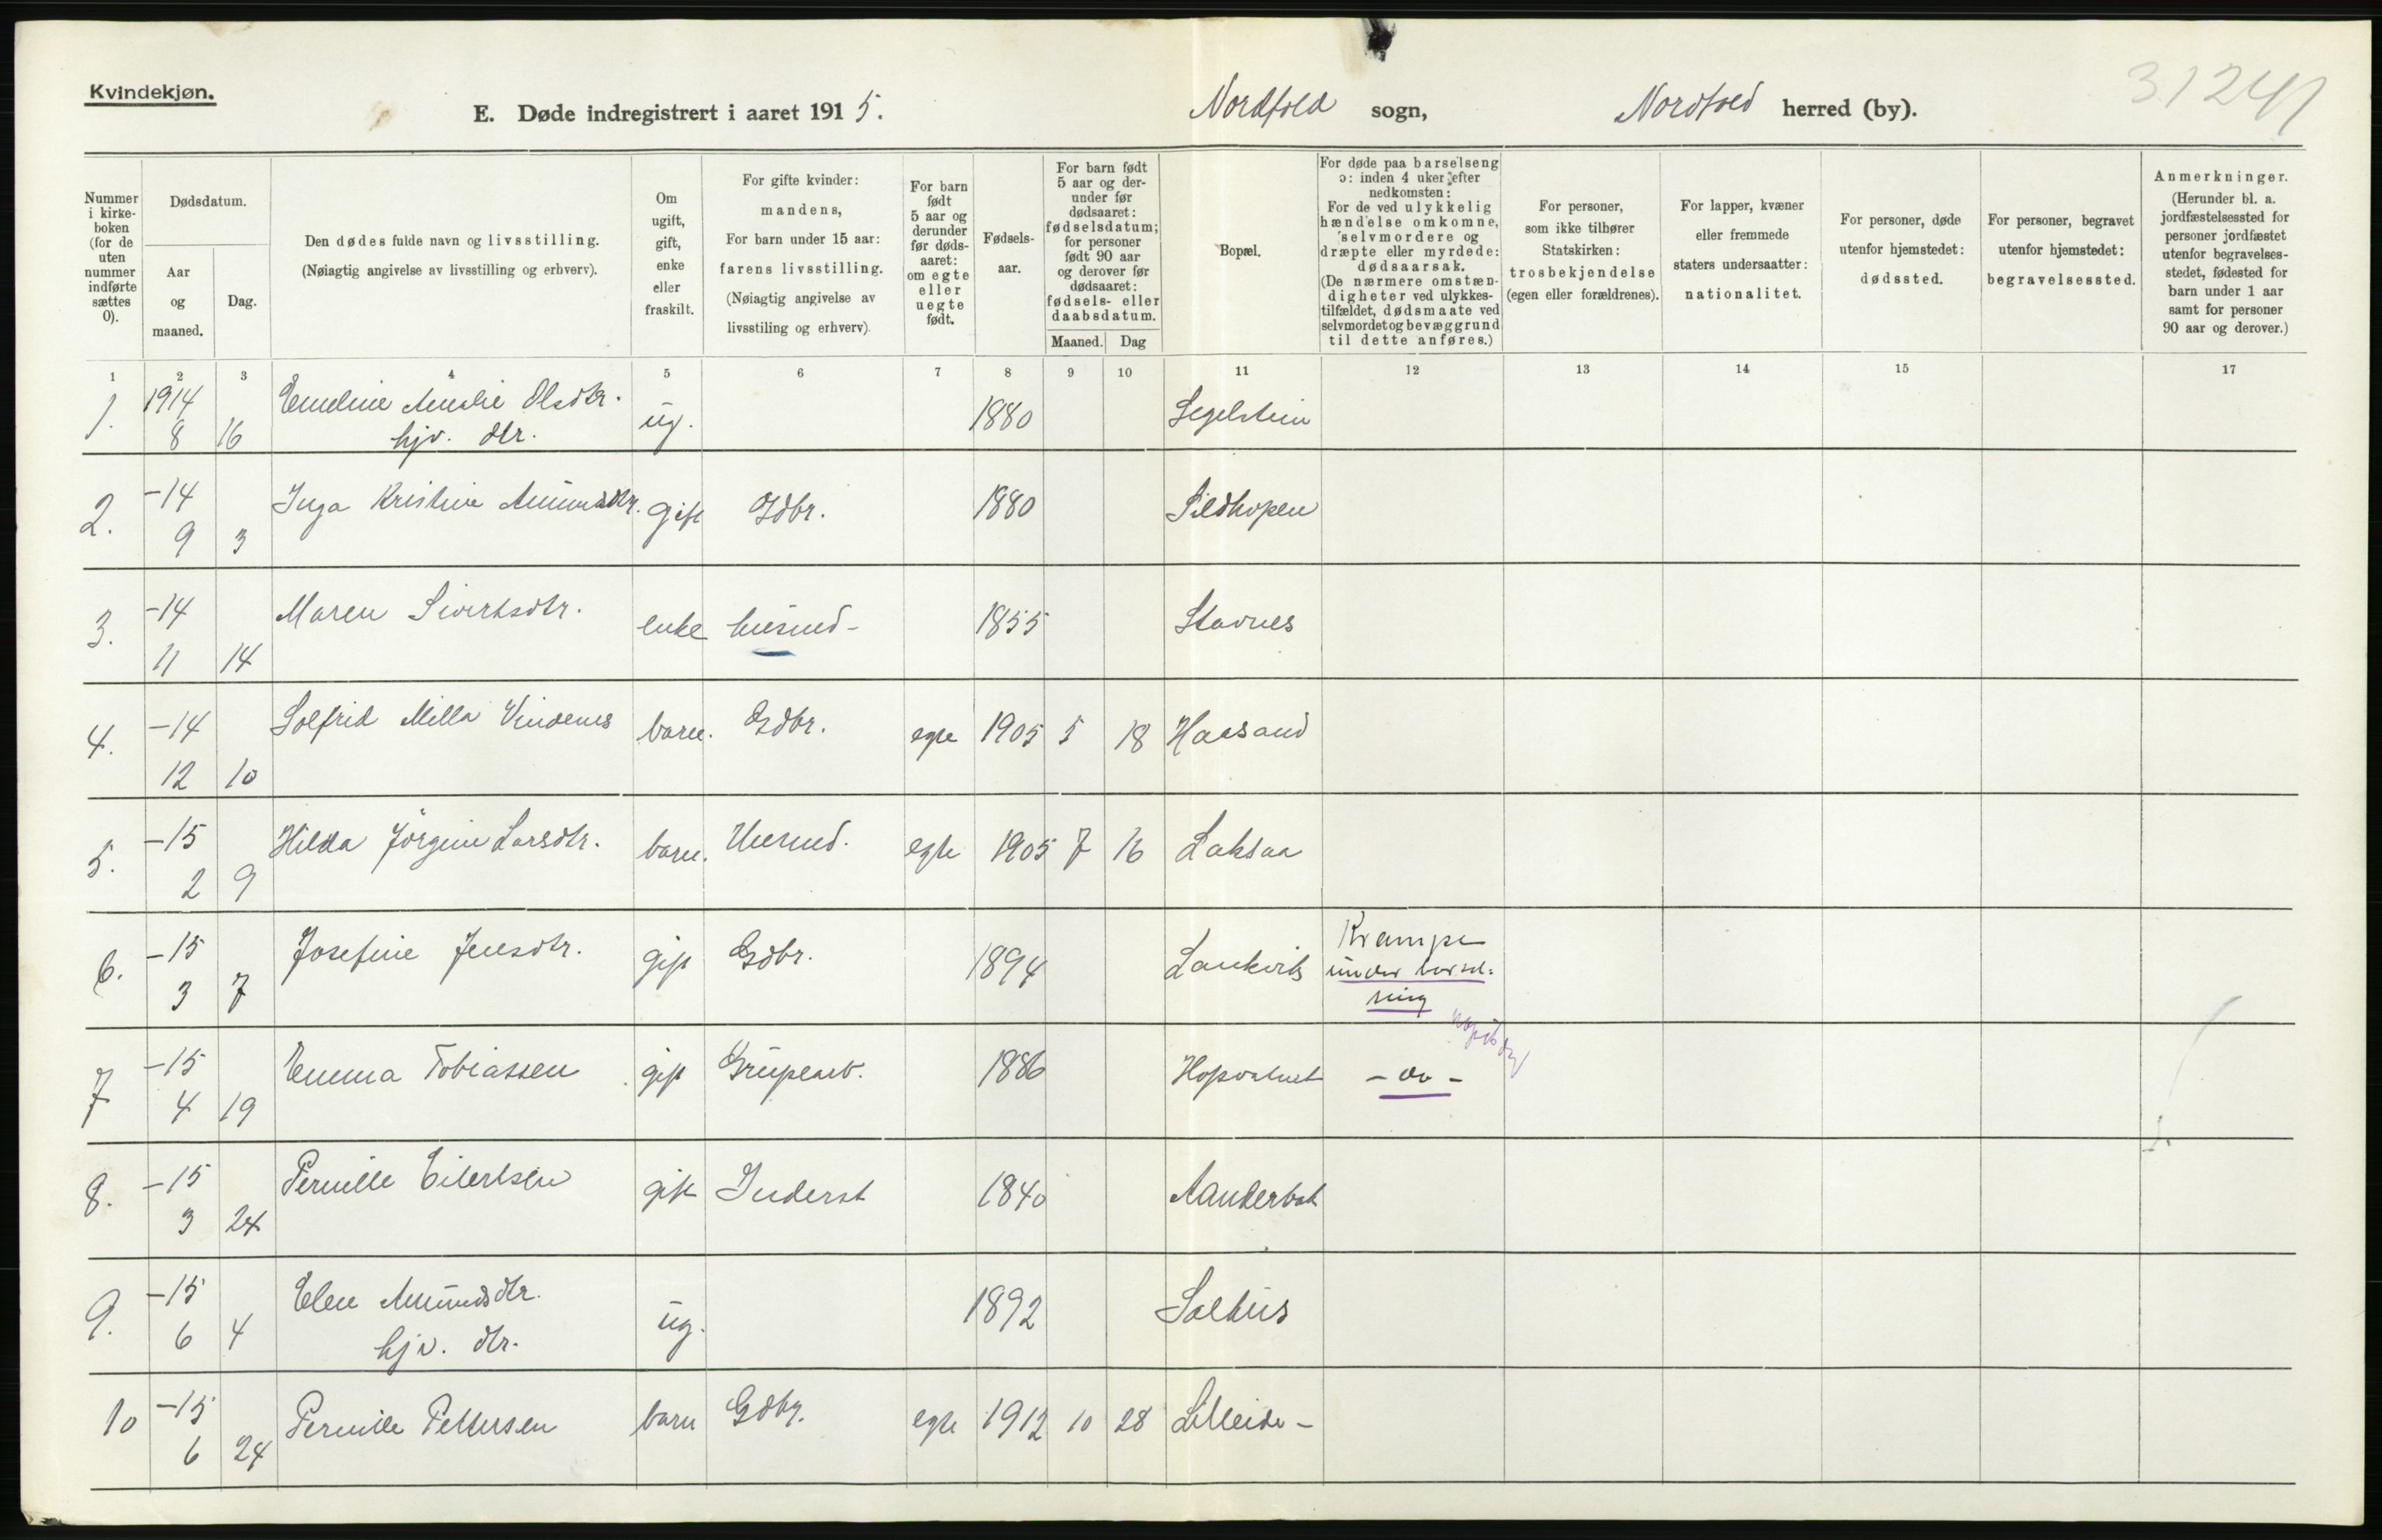 Kvindekjøn.
E. Døde indregistrert i aaret 1915.
Nordfold sogn,
Nordfold herred (by).
31241
Nummer i kirke-boken (for de uten nummer indførte sættes 0).
Dødsdatum.
Aar og maaned.
Dag.
Den dødes fulde navn og livsstilling.
(Nøiagtig angivelse av livsstilling og erhverv).
Om ugift, gift, enke eller fraskilt.
For gifte kvinder: mandens,
For barn under 15 aar: farens livsstilling.
(Nøiagtig angivelse av livsstiling og erhverv).
For barn født 5 aar og derunder før døds-aaret: om egte eller uegte født.
Fødsels-aar.
For barn født 5 aar og der-under før dødsaaret: fødselsdatum; for personer født 90 aar og derover før dødsaaret: fødsels- eller daabsdatum.
Maaned.
Dag
Bopæl.
For døde paa barselseng ɔ: inden 4 uker efter nedkomsten:
For de ved ulykkelig hændelse omkomne, selvmordere og dræpte eller myrdede: dødsaarsak.
(De nærmere omstæn-digheter ved ulykkes-tilfældet, dødsmaate ved selvmordet og bevæggrund til dette anføres.)
For personer, som ikke tilhører Statskirken: trosbekjendelse (egen eller forældrenes).
For lapper, kvæner eller fremmede staters undersaatter: nationalitet.
For personer, døde utenfor hjemstedet: dødssted.
For personer, begravet utenfor hjemstedet: begravelsessted.
Anmerkninger.
(Herunder bl. a. jordfæstelsessted for personer jordfæstet utenfor begravelses-stedet, fødested for barn under 1 aar samt for personer 90 aar og derover.)
1 2 3 4 5 6 7 8 9 10 11 12 13 14 15 17
1. 1914 8 16 Emeline Amalie Olsdtr. hjv. dtr. ug. 1880 Segelstein
2. -14 9 3 Inga Kristine Amundsdtr. gift Gdbr. 1880 Sildhopen
3. -14 11 14 Maren Sivertsdtr. enke husmd- 1855 Stavnes
4. -14 12 10 Solfrid Milla Vindenes barn. Gdbr. egte 1905 5 18 Haasand
5. -15 2 9 Hilda Jörgine Larsdtr. barn. Husmd. egte 1905 7 16 Laksaa
6. -15 3 7 Josefine Jensdtr. gift Gdbr. 1894 Lankvik Krampe under barsel-ning
7 -15 4 19 Emma Tobiassen gift Grupearb. 1886 Hopvatnet - do -
8. -15 3 24 Pernille Eilertsen gift Inderst 1840 Aanderbak
9. -15 6 4 Elen Amundsdtr. hjv. dtr. ug. 1892 Solhus
10 -15 6 24 Pernille Pettersen barn Gdbr. egte 1912 10 28 Lilleide-